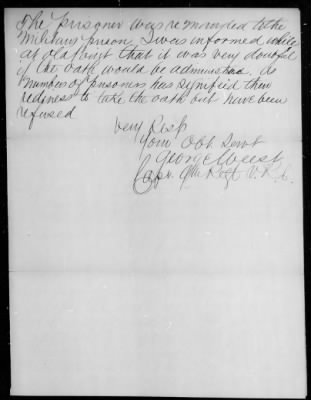 The prisoner was remanded to the
Military prison I was informed while
at old Capt that it was very doutful
if the oath would be administred. As
numbers of prisoners has signified their
rediness to take the oath but have been
refused
Very Resp
Your Obt. Servt
George
Capt. 9th Regt V.R.C.